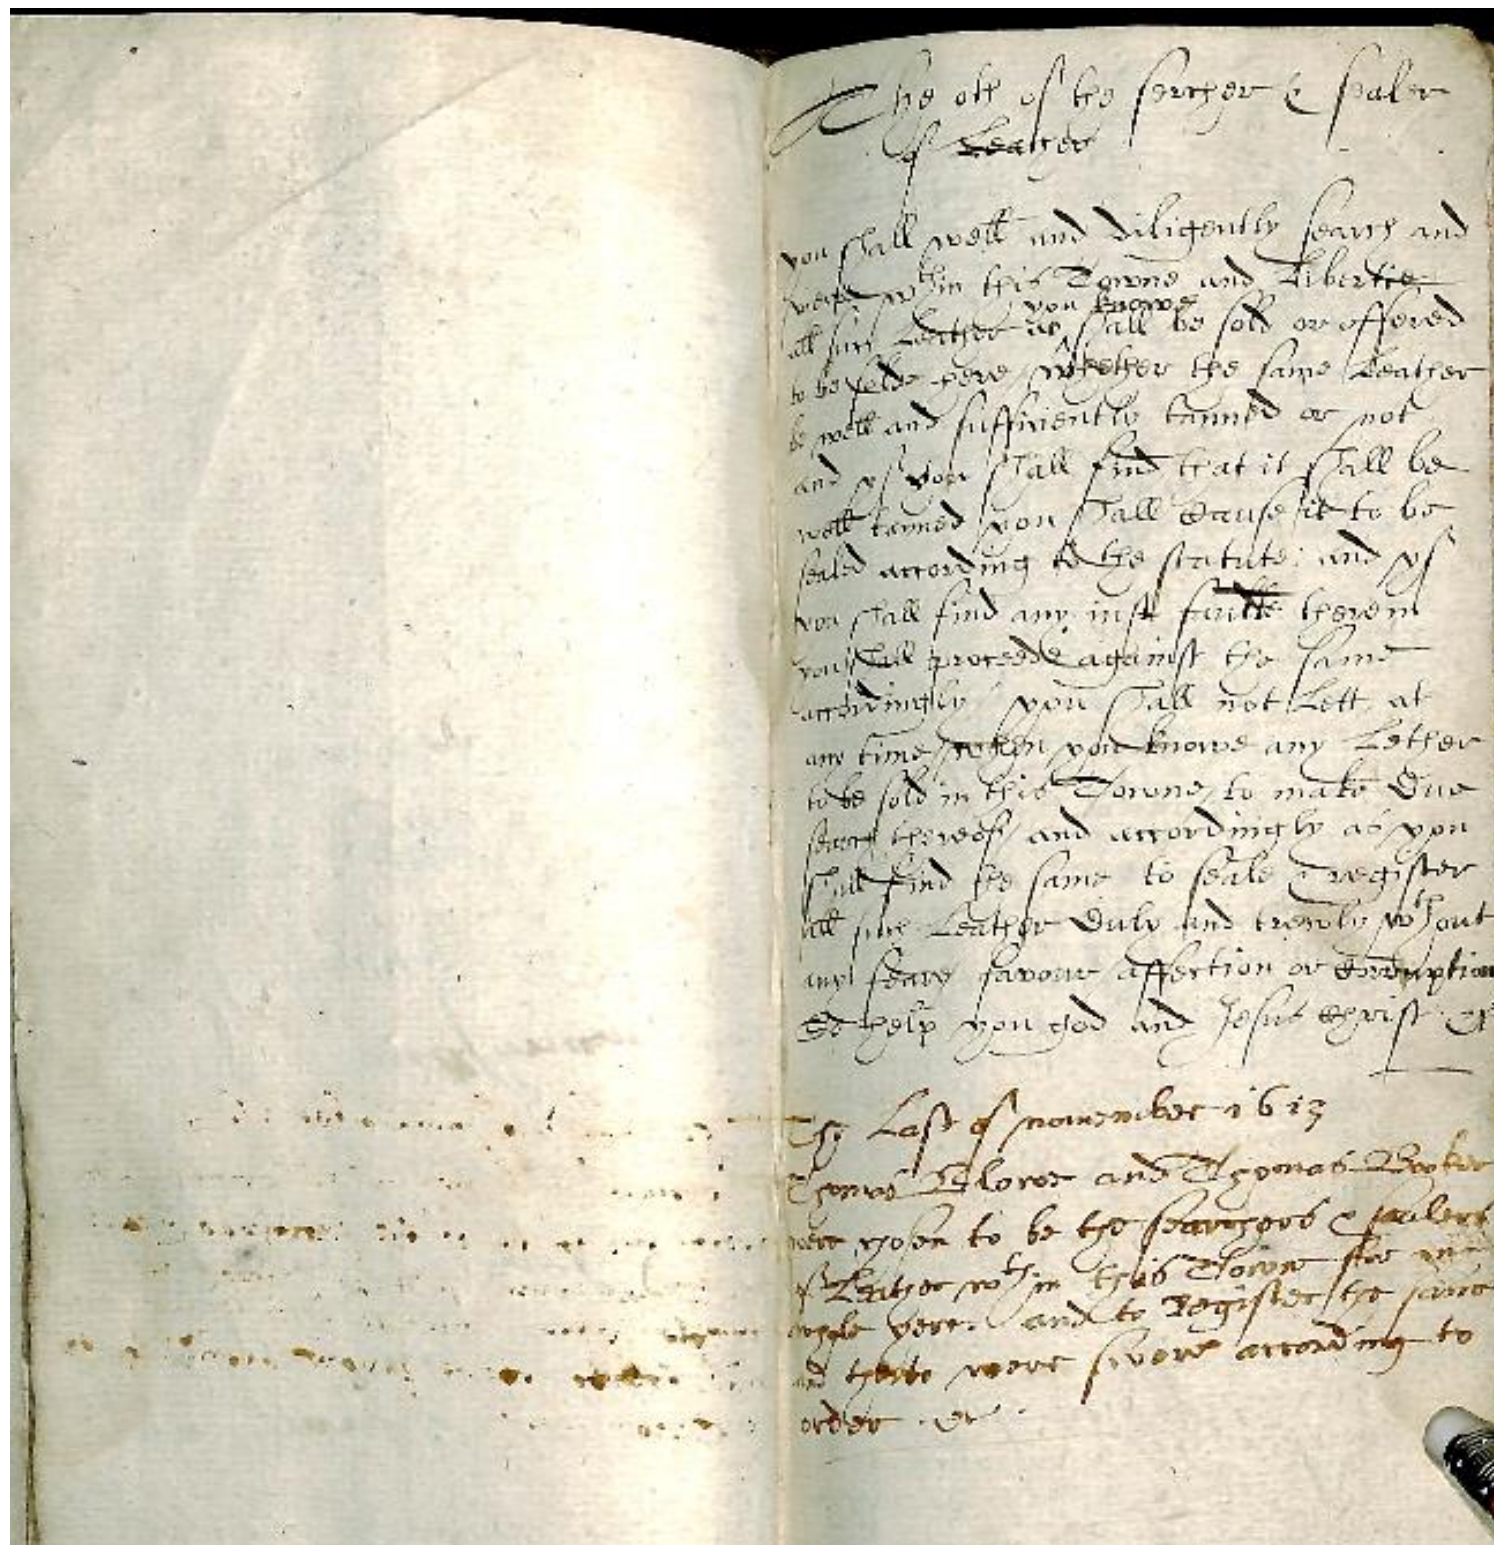 The oth of the sercher & sealer
of Leather
you shall well and diligently search and
wthin this Towne and Libertie
you knowe
all such Leather as shall be sold or offered
to be solde here, whether the same Leather
be well and sufficiently tanned or not
and yf you shall find that it shall be
well tanned you shall cause it to be
sealed according to the statute: and yf
you shall find any iust faulte therein
you shall proceede against the same
accordingly / you shall not Lett at
any time when you knowe any Lether
to be sold in this Towne, to make due
search thereof, and accordingly as you
shall find the same to seale & register
all such Leather duly and trewly wthout
any feare favour affection or corruption
So help you god and Jesus Christ
The Last of november 1613
Thomas and Thomas Booker
were chosen to be the searchers & sealers
of Leather wthin this Towne for one
whole yere. and to Register the same
and therto were sworne according to
order. &c.